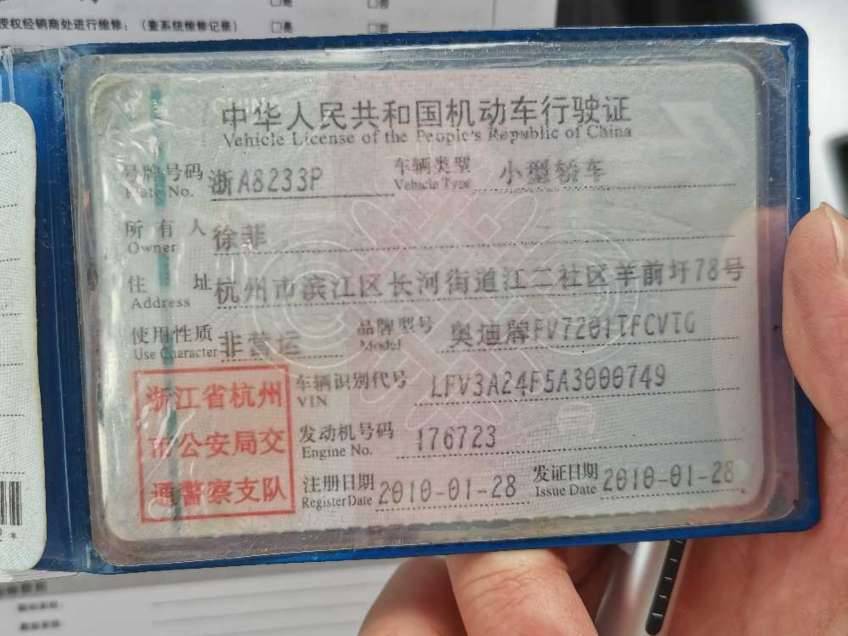 授权经销商处进行维修：（查系统维修记录） □是 □否
中华人民共和国机动车行驶证
Vehicle License of the People's Republic of China
号牌号码 浙A8233P 车辆类型 小型轿车
Plate No. Vehicle Type
所有人 徐菲
Owner
住址 杭州市滨江区长河街道江二社区羊前圩78号
Address
使用性质 非营运 品牌型号 奥迪牌FV7201TFCVTG
Use Character Model
浙江省杭州
市公安局交
通警察支队
车辆识别代号 LFV3A24F5A3000749
VIN
发动机号码 176723
Engine No.
注册日期 2010-01-28 发证日期 2010-01-28
Register Date Issue Date